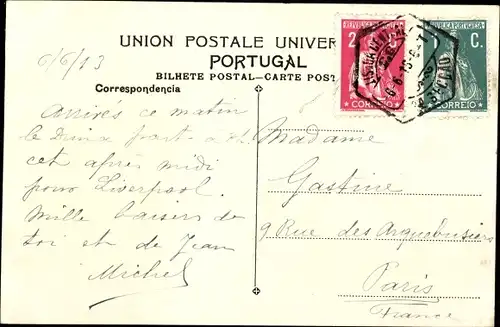 6/6/13
UNION POSTALE UNIVER
PORTUGAL
BILHETE POSTAL-CARTE POST
Correspondencia
REPUBLICA PORTUGUESA
2
CORREIO
C.
CORREIO
Arrivés ce matin
le part
cet après midi
pour Liverpool.
Mille baisers de
toi et de Jean
Michel
Madame
Gastine
9 Rue des Arquebusiers
Paris
France